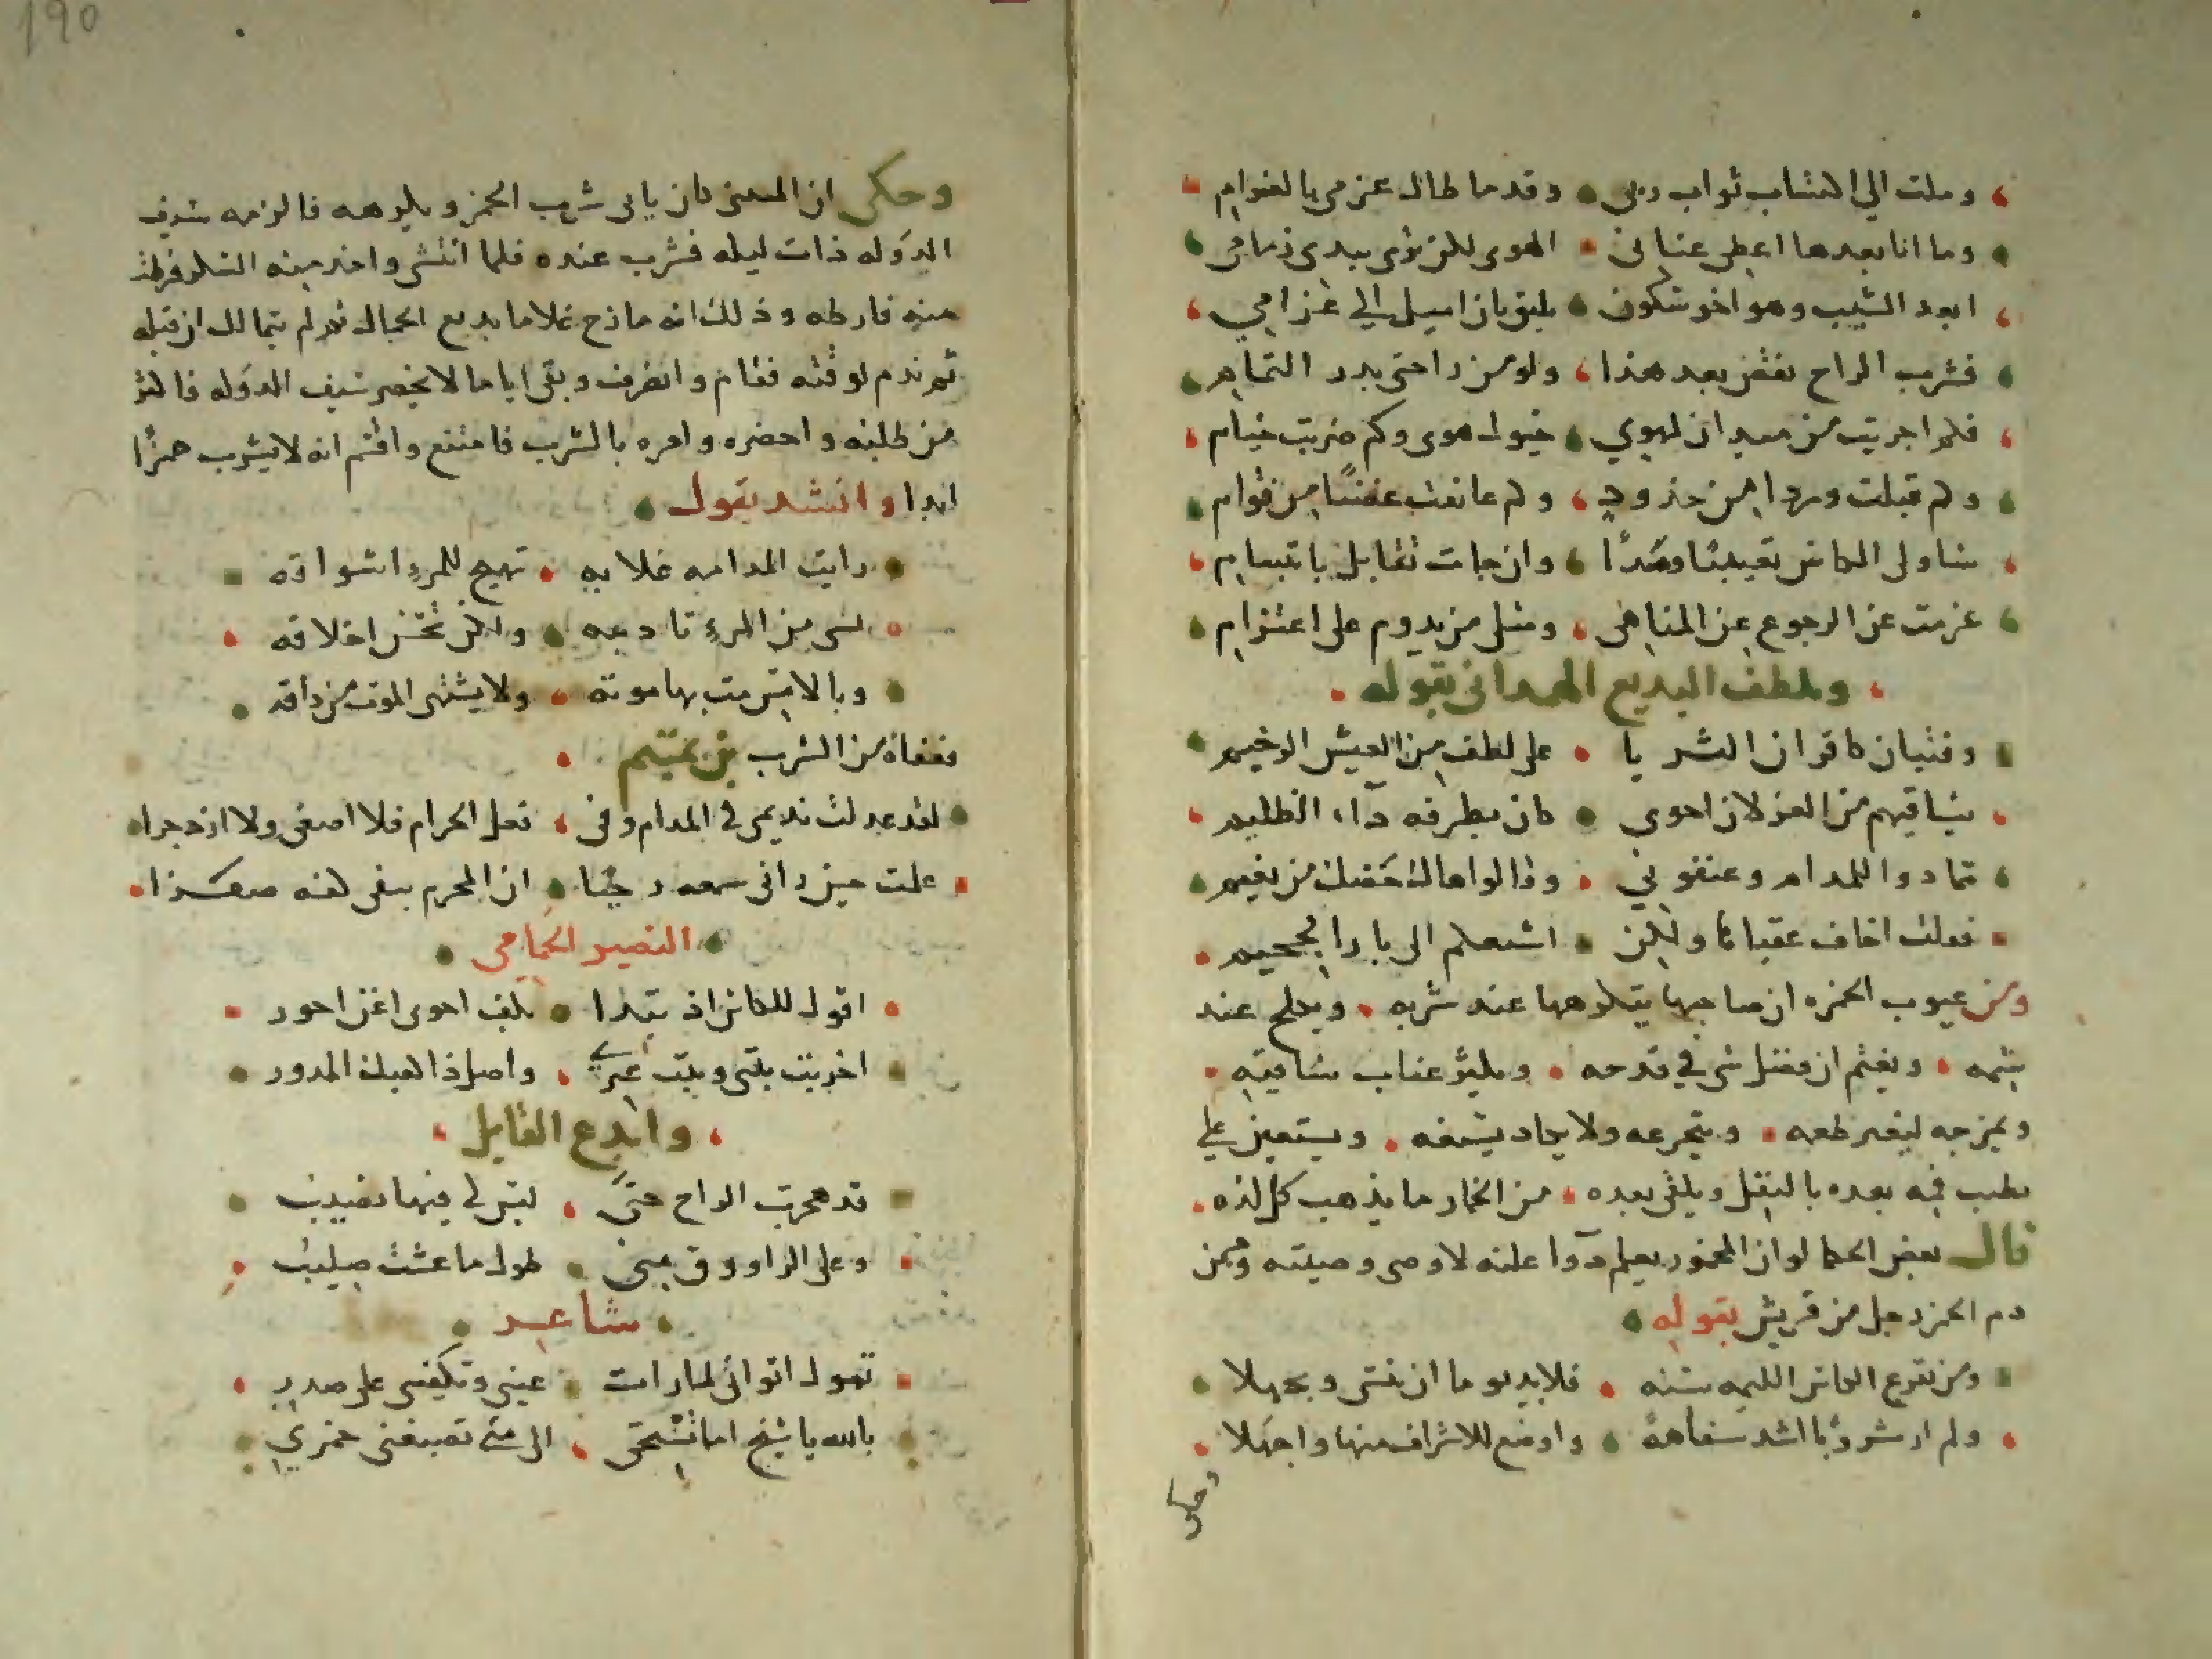 وملت الي اكتساب ثواب ربى وقدما طال عزمى بالغرام
وما انا بعدها اعطى عنانى الهوى لكن ترى بيدى زمامى
ابعد الشيب وهو اخو سكون يليق بان اميل الي غرامي
فشرب الراح نقص بعد هذا ولو من راحتى بدر التمام
فكم اجريت من ميدان لهوي خيول هوى وكم ضربت خيام
وكم قبلت وردا من خدود وكم عانقت غصنا من قوام
عزمت عن الرجوع عن المناهى ومثلى من يدوم على اعتزام
ولطف البديع الهمدانى بقوله
وفتيان كاقران الثريا على لطف من العيش الرخيم
يساقيهم من الغزلان احوي كان بطرفه داء الظليم
تمادوا للمدام وعنفوني وقالوا هاك حضك من نعيم
فقلت اخاف عقباها ولكن اشيعكم الى باب الجحيم
ومن عيوب الخمره ان صاحبها يتكرهها عند شربه ويكلح عند
شمه ويغتم ان فضل شى في قدحه ويكثر عتاب ساقيه
ويمزجه ليغير طعمه ويتجرعه ولا يكاد يسيغه ويستعين على
طيب فمه بعده بالنقل ويلقى بعده من الخمار ما يذهب كل لذه
قال بعض الحكما لو ان المخمور يعلم دوا علته لاوصى وصيته وممن
ذم الخمر رجل من قريش بقوله
ومن تقرع الكاس اللئيمه سنه فلا بد يوما ان يسى ويجهلا
ولم ار مشروبا اشد سفاهة واوضع للاشراف منها واجهلا
وحكى
190
وحكى ان المتنبى كان يابى شرب الخمر ويكرهه فالزمه سيف
الدوله ذات ليله فشرب عنده فلما انتشى واخذ منه السكر فرط
منه فارطه وذلك انه مازح غلاما بديع الجمال ثم لم يتمالك ان قبله
ثم ندم لوقته فقام وانصرف وبقى اياما لا يحضر سيف الدوله فاكثر
من طلبه واحضره وامره بالشرب فامتنع واقسم انه لا يشرب خمرًا
ابدا وانشد يقول
رايت المدامه غلابه تهيج للمرء اشواقه
تسى من المرء تاديبه ولكن تحسن اخلاقه
وبالامس مت بها موته ولا يشتهى الموت من ذاقه
فعفاه من الشرب بن تميم
لقد عدلت نديمى فى المدام وفى فعل الحرام فلا اصغى ولا ازدجرا
علمت حين رانى
النصير الحمامى
اقول للكاس اذ تبدا بكف احوى اغن احور
اخربت بيتى وبيت غيرى واصل ذا كعبك المدور
وابدع القايل
قد هجرت الراح حتى ليس لى فيها نصيب
وعلى الراووق منى طول ما عشت صليب
شاعر
تقول اثوابى لما رات عينى وتكيفى على صدرى
بالله يا شيخ اما تستحى الى متى تصبغنى خمري